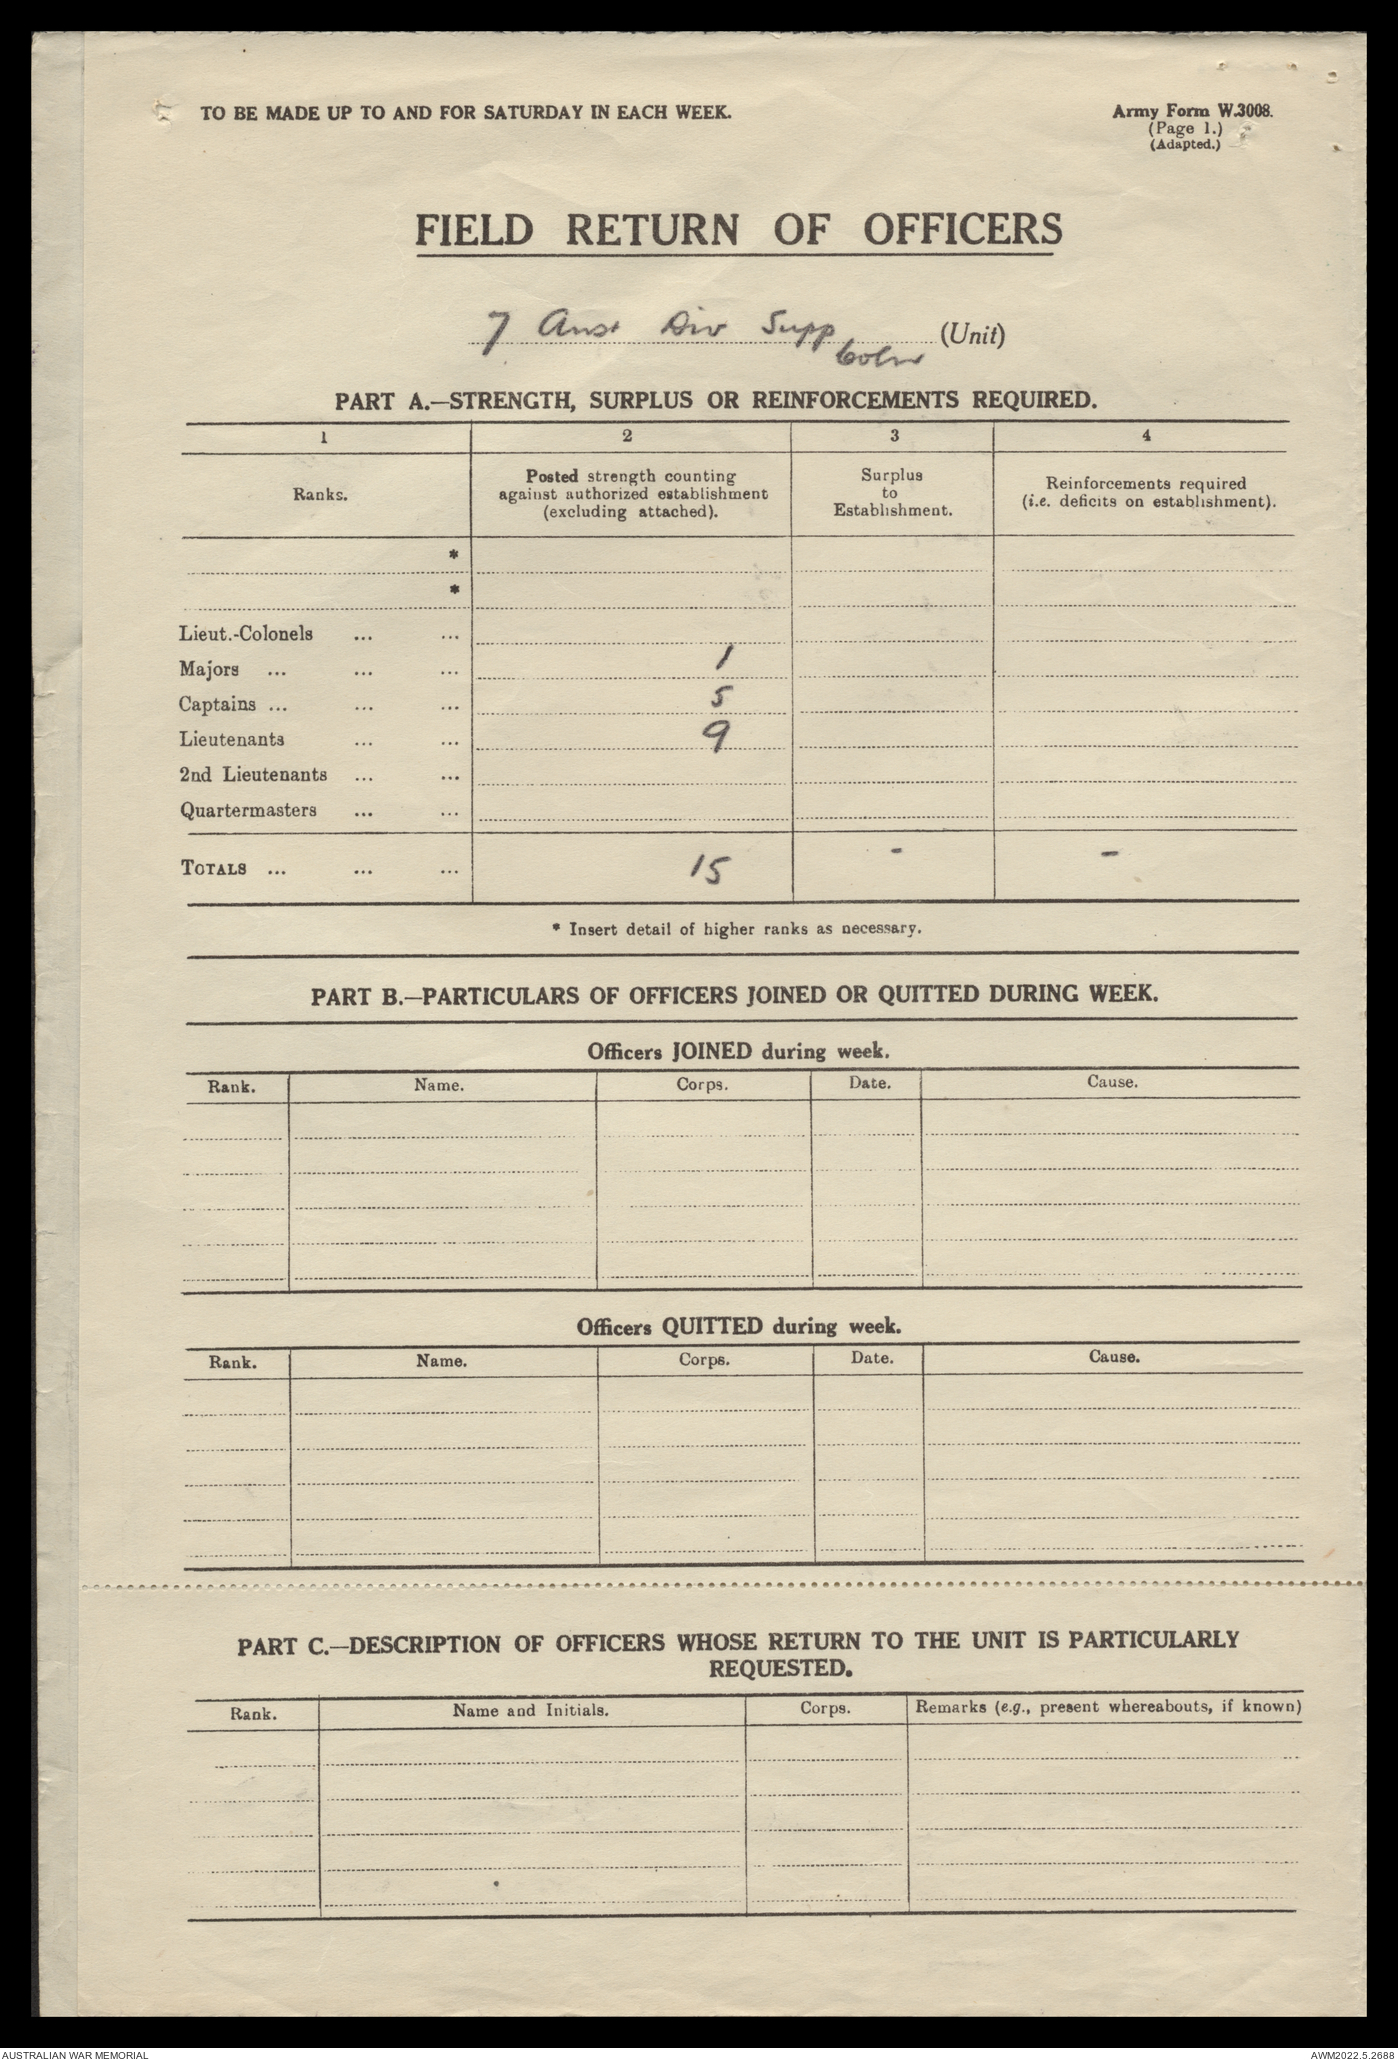 TO BE MADE UP TO AND FOR SATURDAY IN EACH WEEK.
Army Form W.3008.
(Page 1.)
(Adapted.)
FIELD RETURN OF OFFICERS
7 Aust Div Supp Coln (Unit)
PART A.—STRENGTH, SURPLUS OR REINFORCEMENTS REQUIRED.
1 2 3 4
Ranks.
Posted strength counting
against authorized establishment
(excluding attached).
Surplus
to
Establishment.
Reinforcements required
(i.e. deficits on establishment).
*
*
Lieut.-Colonels ... ...
Majors ... ... ... 1
Captains ... ... ... 5
Lieutenants ... ... 9
2nd Lieutenants ... ...
Quartermasters ... ...
TOTALS ... ... ... 15 - -
* Insert detail of higher ranks as necessary.
PART B.—PARTICULARS OF OFFICERS JOINED OR QUITTED DURING WEEK.
Officers JOINED during week.
Rank. Name. Corps. Date. Cause.
Officers QUITTED during week.
Rank. Name. Corps. Date. Cause.
PART C.—DESCRIPTION OF OFFICERS WHOSE RETURN TO THE UNIT IS PARTICULARLY
REQUESTED.
Rank. Name and Initials. Corps. Remarks (e.g., present whereabouts, if known)
AUSTRALIAN WAR MEMORIAL AWM2022.5.2688